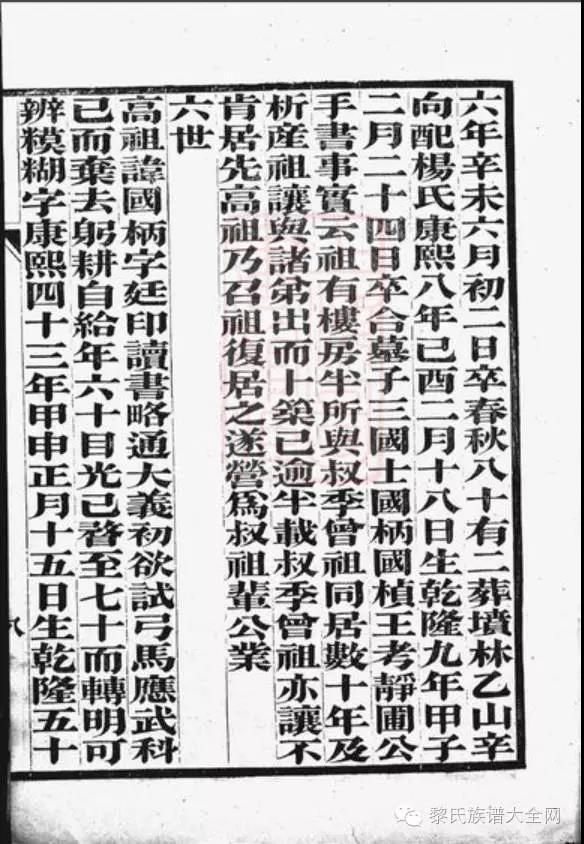 六年辛未六月初二日卒春秋八十有二葬墳林乙山辛
向配楊氏康熙八年己酉二月十八日生乾隆九年甲子
二月二十四日卒合墓子三國士國柄國楨王考靜圃公
手書事實云祖有樓房半所與叔季曾祖同居數十年及
析産祖讓與諸弟出而卜築已逾半載叔季曾祖亦讓不
肯居先高祖乃召祖復居之遂營爲叔祖輩公業
六世
高祖諱國柄字廷印讀書略通大義初欲試弓馬應武科
已而棄去躬耕自給年六十目光已瞀至七十而轉明可
辨糢糊字康熙四十三年甲申正月十五日生乾隆五十
八
黎氏族谱大全网